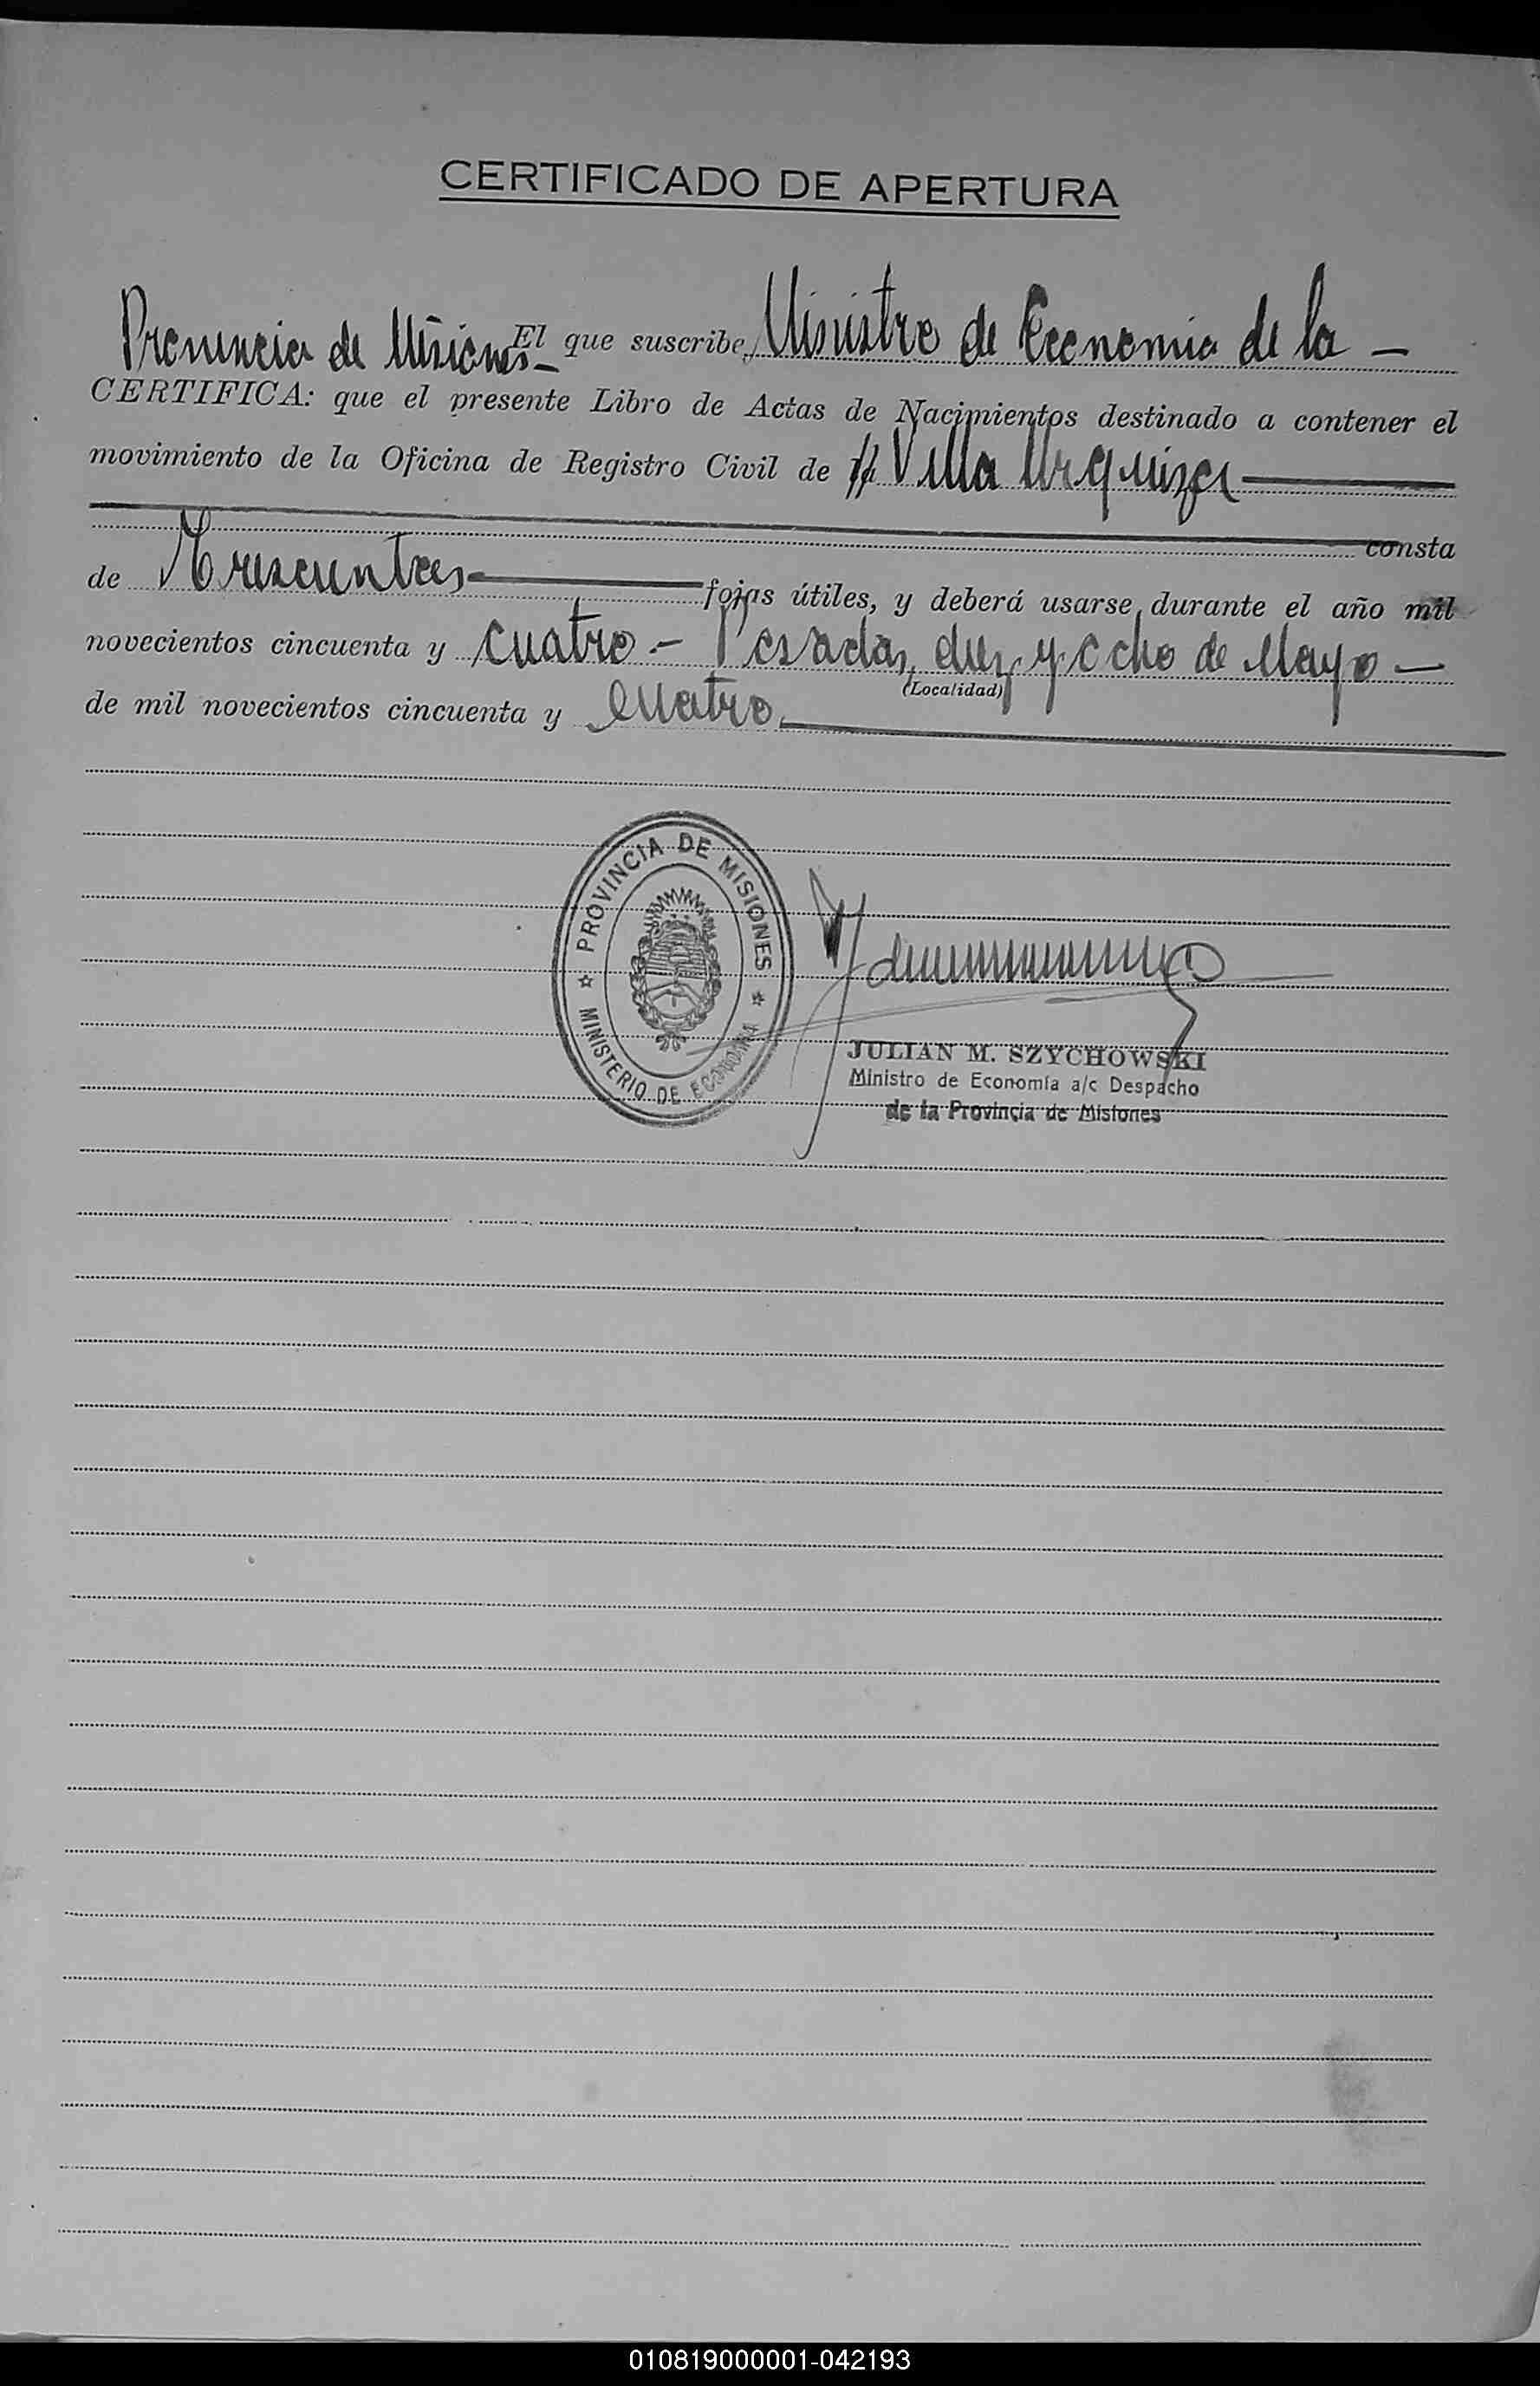 CERTIFICADO DE APERTURA
El que suscribe, Ministro de Economia de la -
Provincia de Misiones -
CERTIFICA: que el presente Libro de Actas de Nacimientos destinado a contener el
movimiento de la Oficina de Registro Civil de Villa Urquiza
consta
de Trescientas fojas útiles, y deberá usarse durante el año mil
novecientos cincuenta y cuatro.- Posadas, diez y ocho de Mayo -
(Localidad)
de mil novecientos cincuenta y cuatro.
PROVINCIA DE MISIONES
MINISTERIO DE ECONOMIA
JULIAN M. SZYCHOWSKI
Ministro de Economía a/c Despacho
de la Provincia de Misiones
010819000001-042193